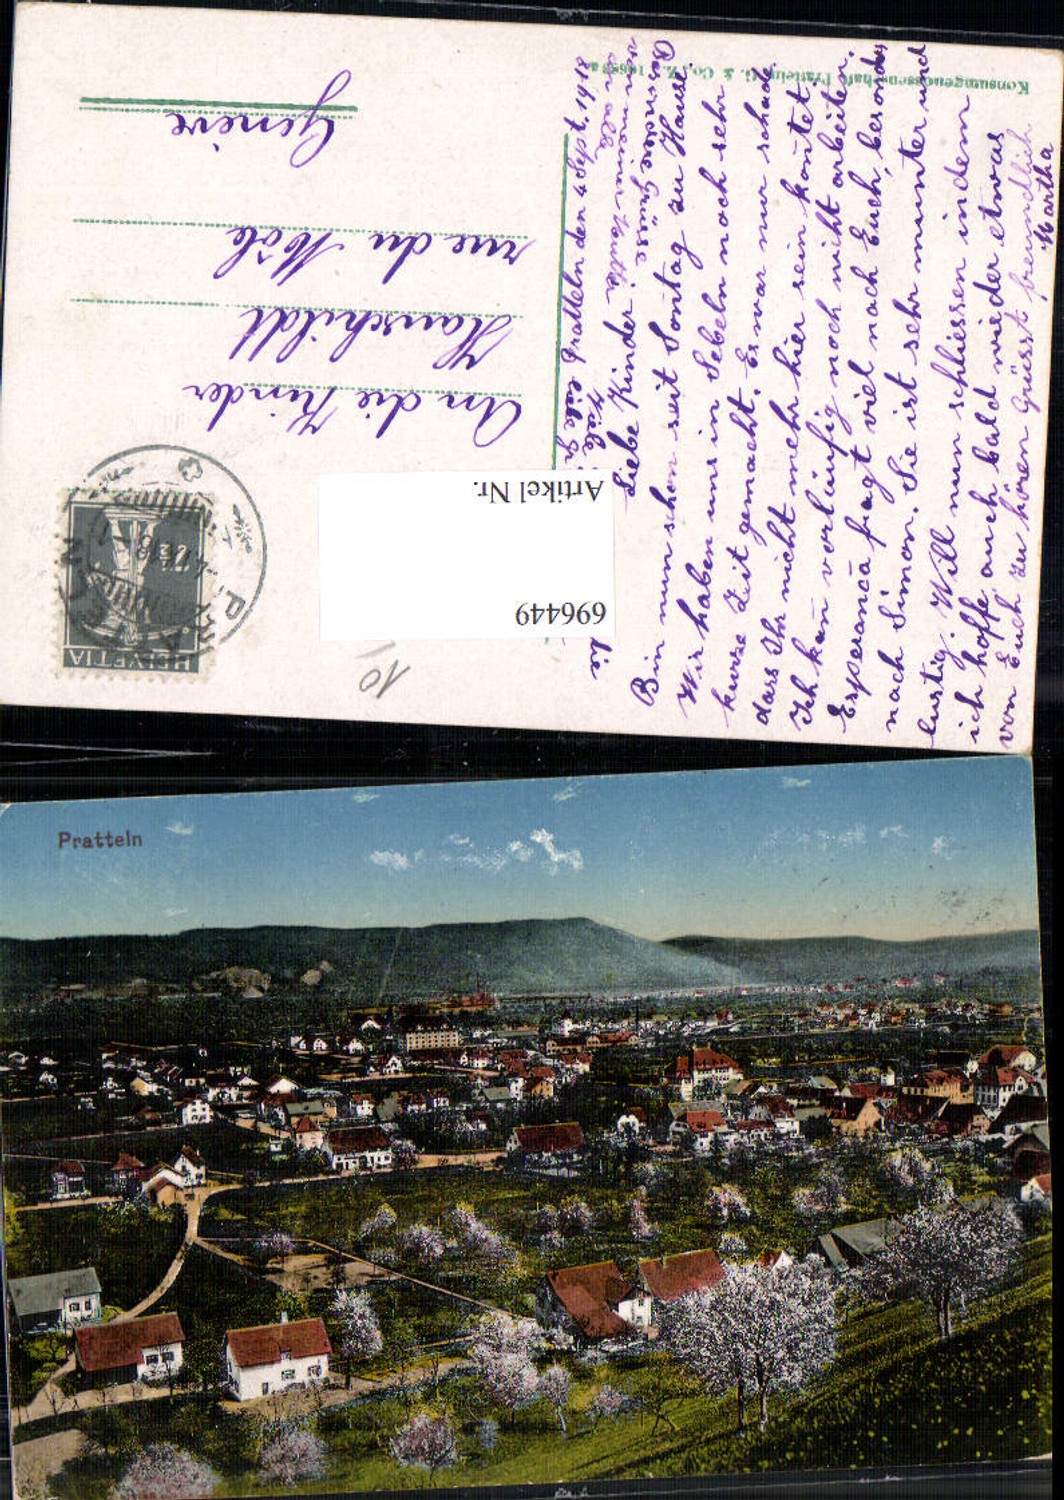 Konsumgenossenschaft Pratteln. G. & Co., Z.
Pratteln den 4. Sept. 1918
Liebe Kinder!
Bin nun schon seit Sontag zu Hause.
Wir haben uns in Sebeln noch sehr
kurze Zeit gemacht. Es war nur schade
dass Ihr nicht mehr hier sein kontet.
Ich kan vorläufig noch nicht arbeiten.
Esperanca fragt viel nach Euch, besonders
nach Simon. Sie ist sehr munter und
lustig. Will nun schliessen indem
ich hoffe auch bald wieder etwas
von Euch zu hören Grüsst freundlich
Martha
Viele liebe Grüsse
von meiner Mutter
an alle
Besondere Grüsse
An die Kinder
Hauschildt
rue du Môle
Genève
HELVETIA
Artikel Nr.
696449
10
Pratteln